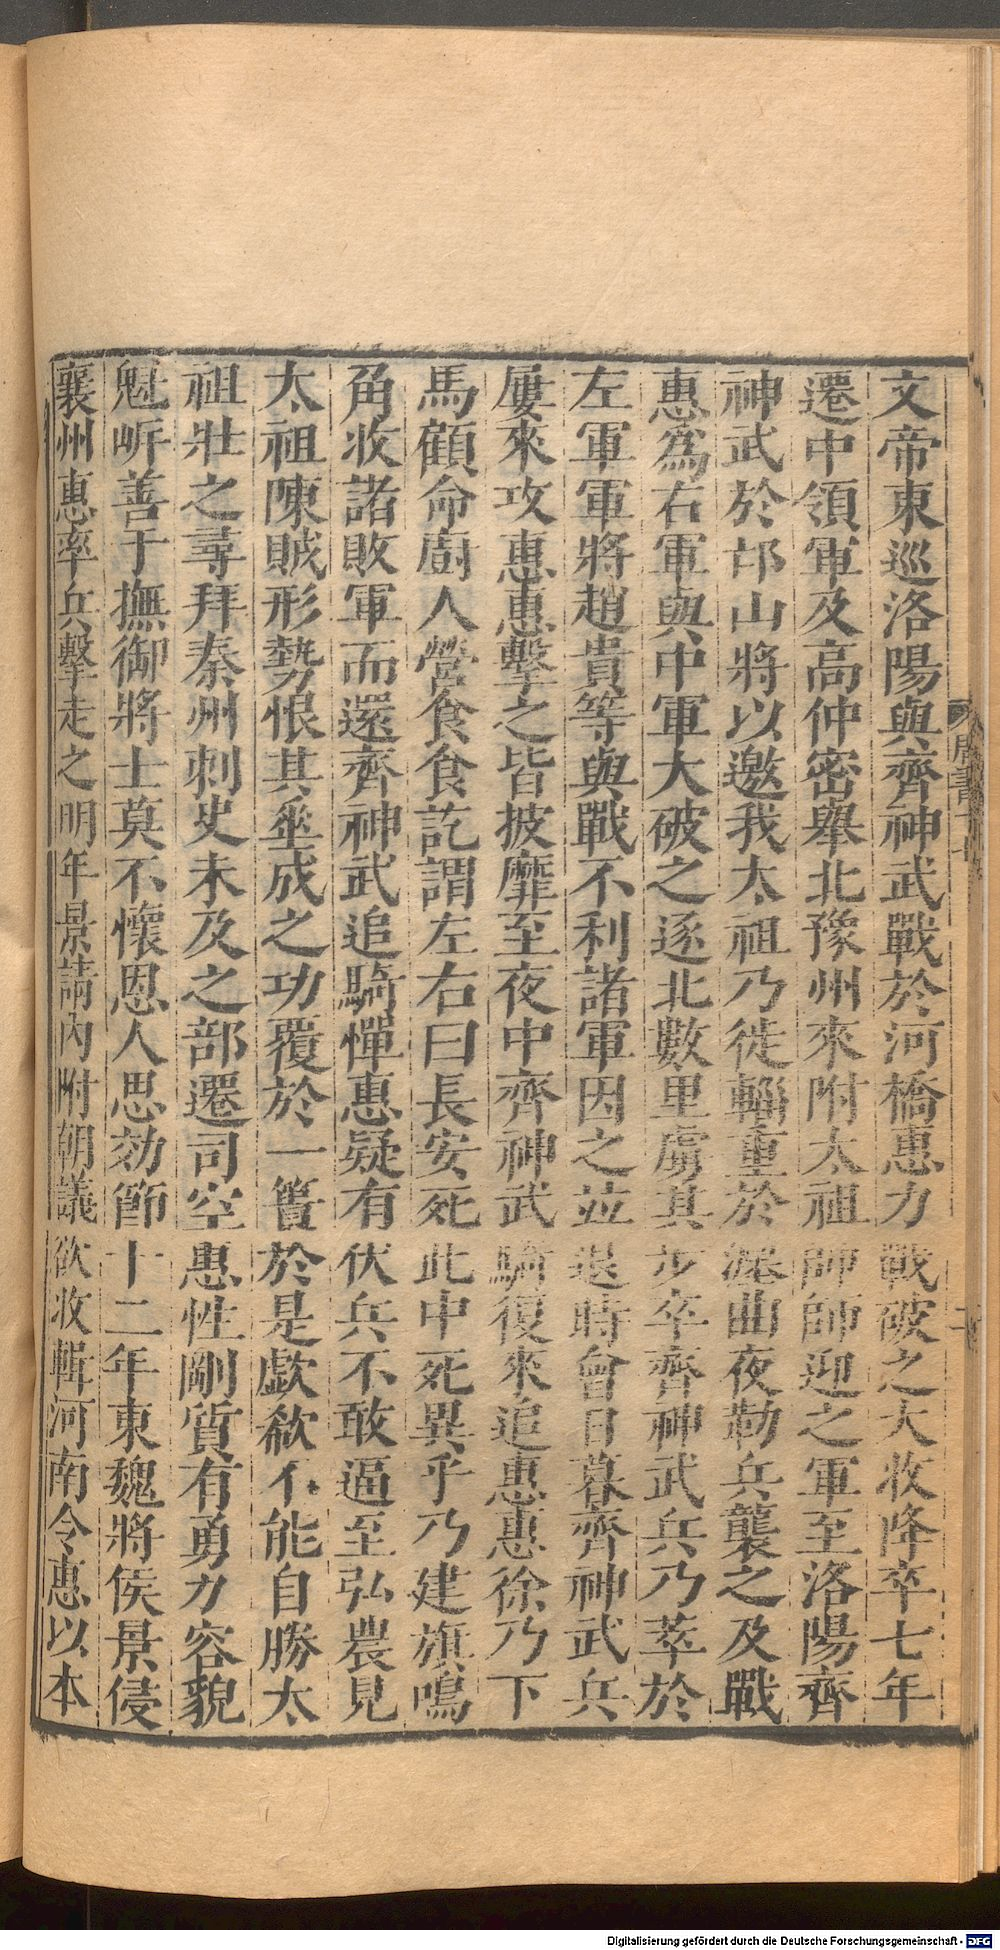 文帝東巡洛陽與齊神武戰於河橋惠力戰破之大收降卒七年
遷中領軍及高仲密舉北豫州來附太祖帥師迎之軍至洛陽齊
神武於邙山將以邀我太祖乃徙輜重於瀍曲夜勒兵襲之及戰
惠爲右軍與中軍大破之逐北數里虜其步卒齊神武兵乃萃於
左軍軍將趙貴等與戰不利諸軍因之並退時會日暮齊神武兵
屢來攻惠惠擊之皆披靡至夜中齊神武騎復來追惠惠徐乃下
馬顧命廚人營食食訖謂左右曰長安死此中死異乎乃建旗鳴
角收諸敗軍而還齊神武追騎憚惠疑有伏兵不敢逼至弘農見
太祖陳賊形勢恨其垂成之功覆於一簣於是歔欷不能自勝太
祖壯之尋拜秦州刺史未及之部遷司空惠性剛質有勇力容貌
魁岸善于撫御將士莫不懷恩人思効節十二年東魏將侯景侵
襄州惠率兵擊走之明年景請內附朝議欲收輯河南令惠以本
周書十七
Digitalisierung gefördert durch die Deutsche Forschungsgemeinschaft - DFG